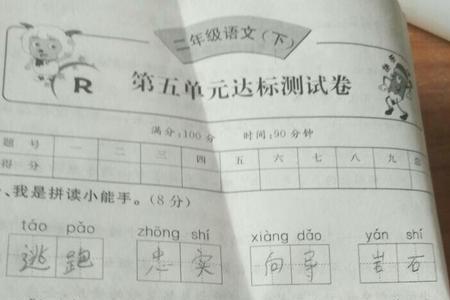 二年级语文(下)
R 第五单元达标测试卷
满分:100分 时间:90分钟
题 号 一 二 三 四 五 六 七 八 九 总
得 分
、我是拼读小能手。(8分)
táo pǎo zhōng shí xiàng dǎo yán shí
逃 跑 忠 实 向 导 岩 石